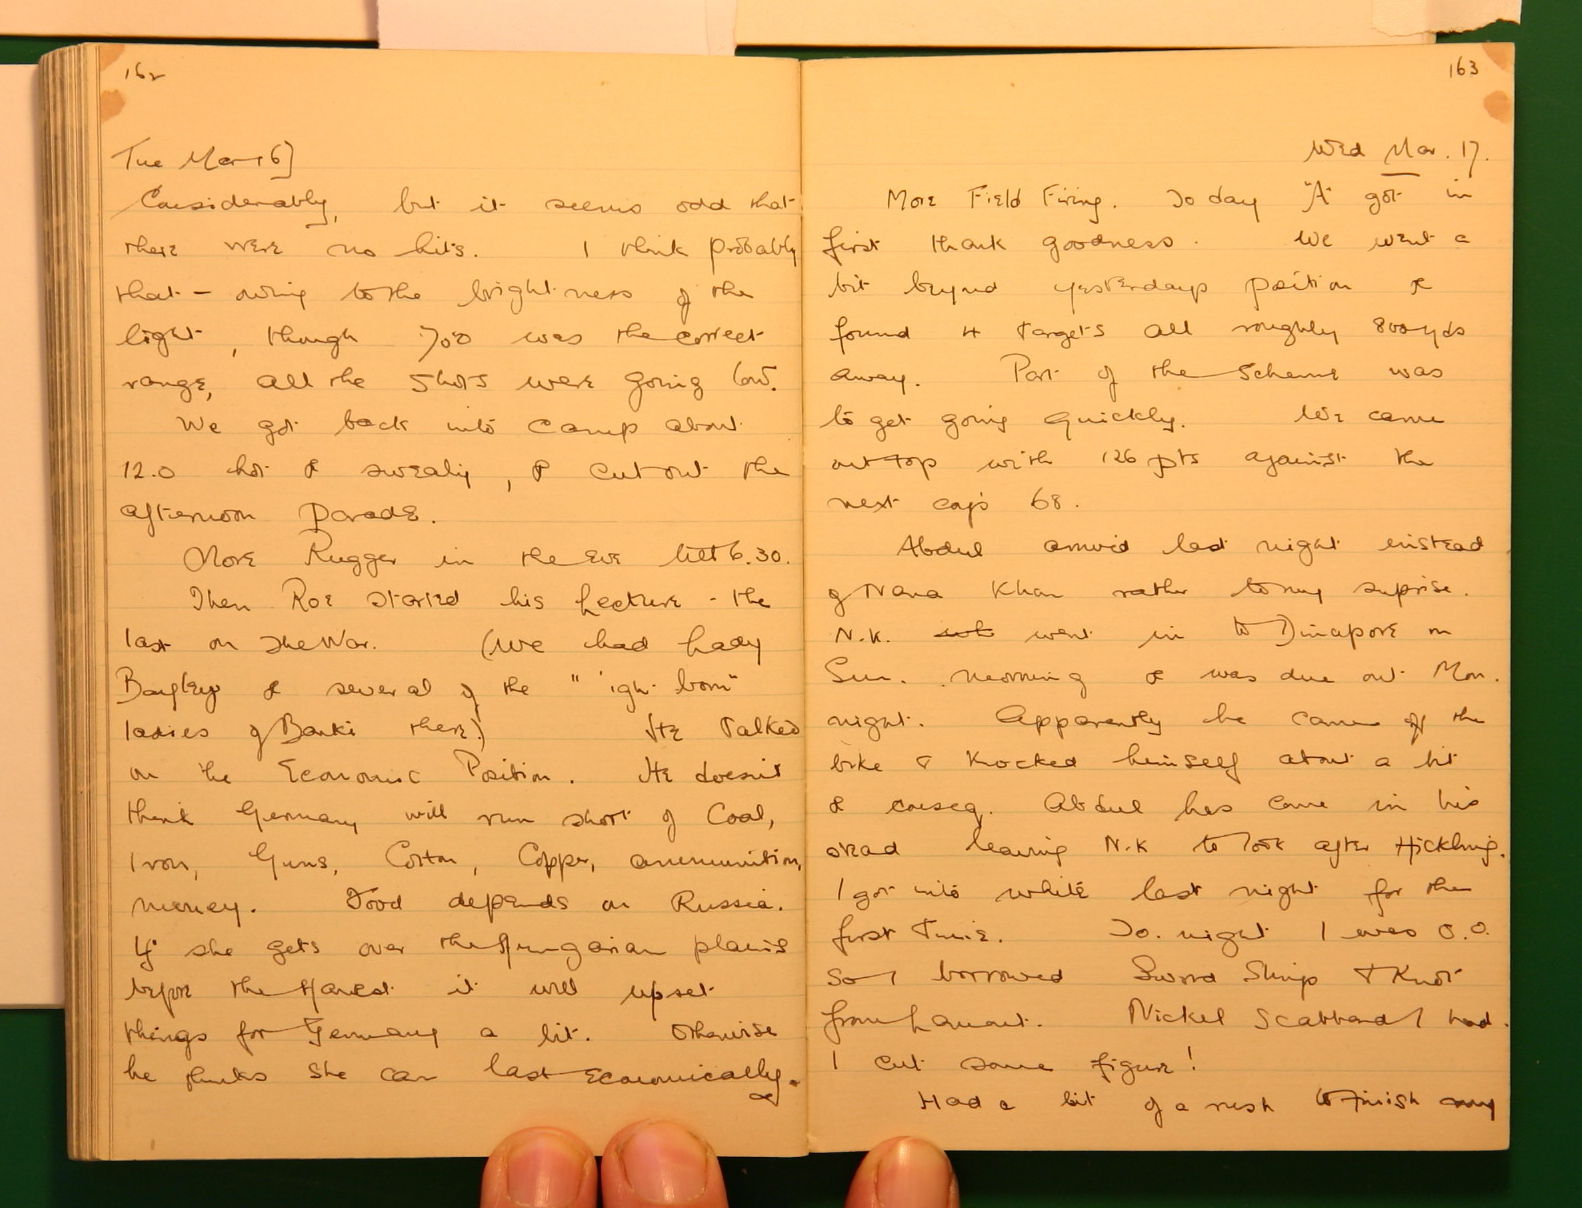 162
Tue Mar 16]
Considerably, but it seems odd that
there were no hits. I think probably
that – owing to the brightness of the
light, though 700 was the correct
range, all the shots were going low.
We got back into camp about
12.0 hot & sweaty, & cut out the
afternoon parade.
More Rugger in the eve till 6.30.
Then Roe started his Lecture - the
last on the War. (We had Lady
Bayley & several of the "'igh born"
ladies of Banki there) He talked
on the Economic Position. He doesnt
think Germany will run short of Coal,
Iron, Guns, Cotton, Copper, ammunition,
money. Food depends on Russia.
If she gets over the Hungarian plains
before the Harvest it will upset
things for Germany a bit. Otherwise
he thinks she can last economically.
163
Wed Mar. 17.
More Field Firing. Today "A" got in
first thank goodness. We went a
bit beyond yesterdays position &
found 4 targets all roughly 800 yds
away. Part of the Scheme was
to get going quickly. We came
out top with 126 pts against the
next coy's 68.
Abdul arrived last night instead
of Nana Khan rather to my suprise.
N.K. went in to Dinapore on
Sun. morning & was due out Mon.
night. Apparently he came off the
bike & knocked himself about a bit
& conseq. Abdul has come in his
stead leaving N.K to look after Hickling.
I got into white last night for the
first time. To.night I was O.O.
so I borrowed Sword Slings & Knot
from Lamont. Nickel Scabbard I had.
I cut some figure!
Had a bit of a rush to finish my